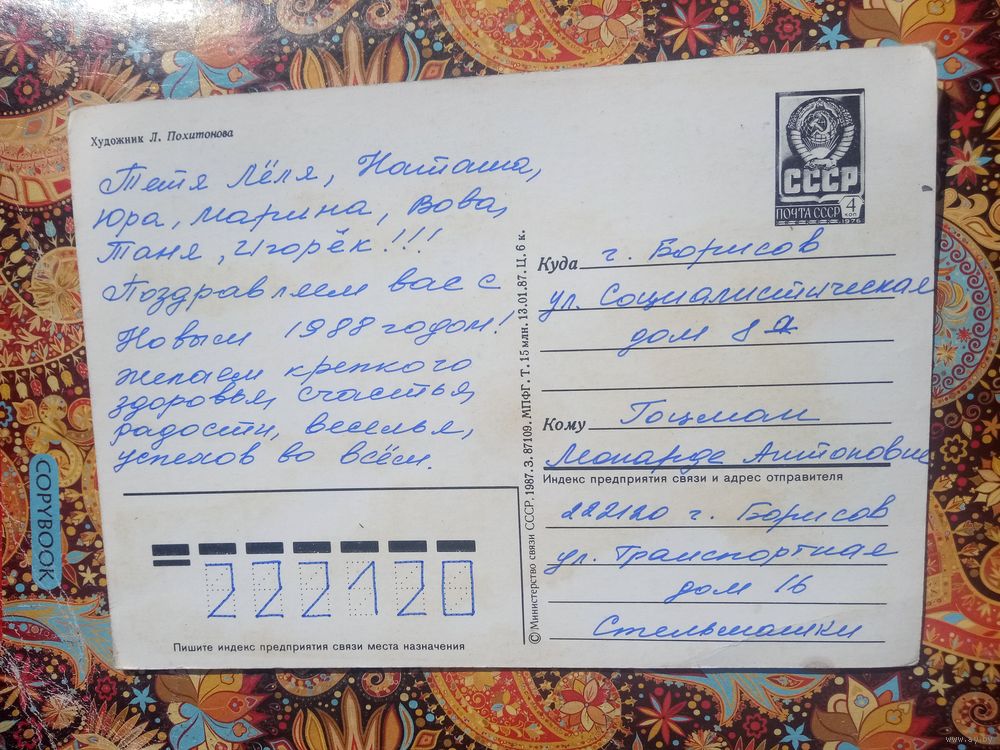 Художник Л. Похитонова
Тетя Лёля, Наташа,
Юра, Марина, Вова,
Таня, Игорёк!!!
Поздравляем вас с
Новым 1988 годом!
Желаем крепкого
здоровья, счастья,
радости, веселья,
успехов во всём.
222120
Пишите индекс предприятия связи места назначения
© Министерство связи СССР. 1987. З. 87109. МПФГ. Т. 15 млн. 13.01.87. Ц. 6 к.
СССР
ПОЧТА СССР 4 коп
1976
Куда г. Борисов
ул. Социалистическая
дом 8а
Кому Гоцман
Монарде Антоновне
Индекс предприятия связи и адрес отправителя
222120 г. Борисов
ул. Транспортная
дом 16
Стельмашки
COPYBOOK
www.ay.by